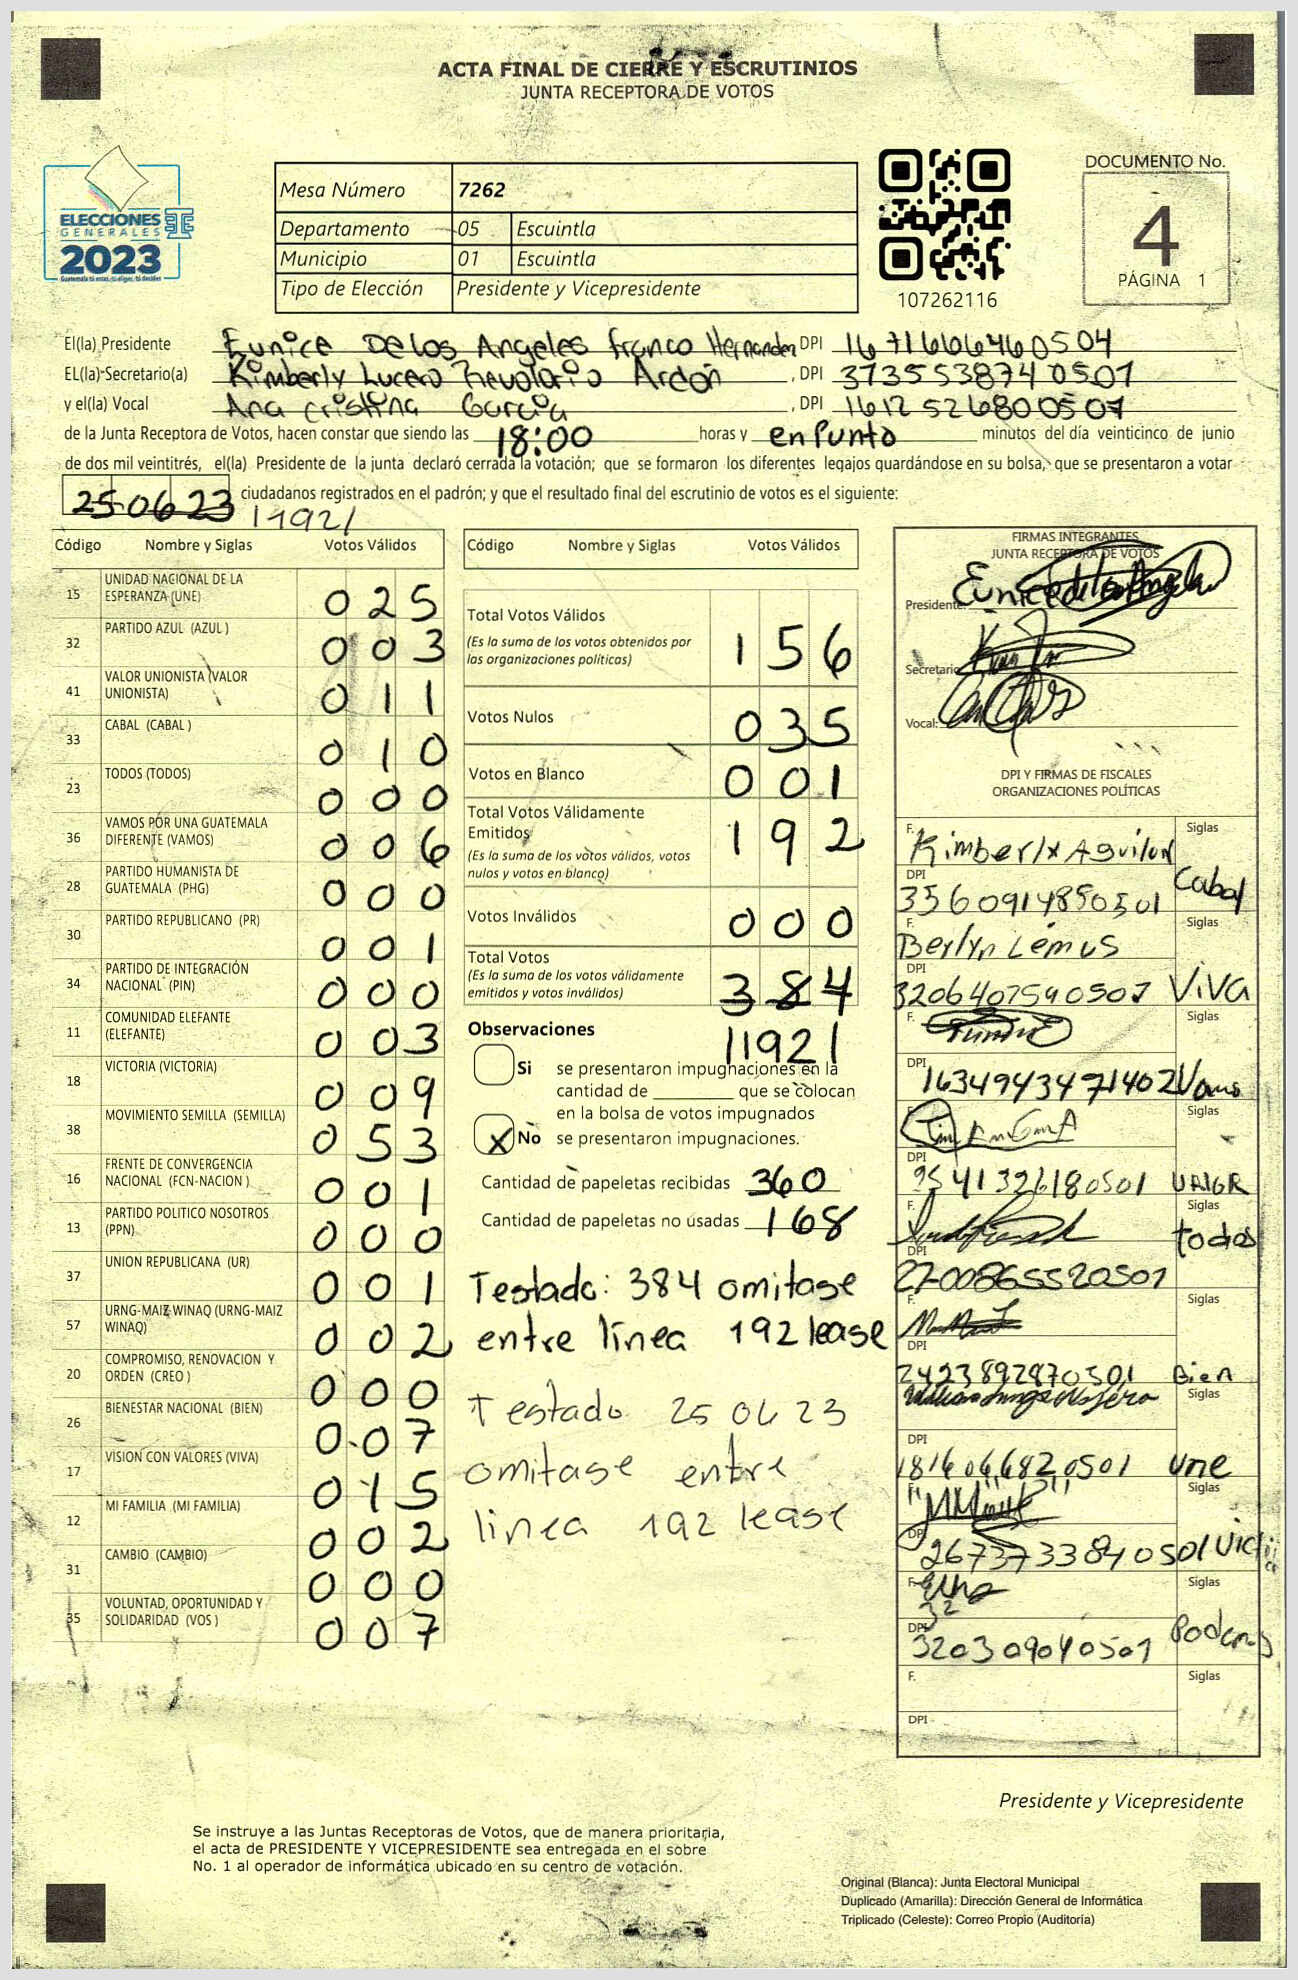 ACTA FINAL DE CIERRE Y ESCRUTINIOS
JUNTA RECEPTORA DE VOTOS
ELECCIONES
GENERALES
2023
Guatemala tú eres, tú eliges, tú decides
Mesa Número 7262
Departamento 05 Escuintla
Municipio 01 Escuintla
Tipo de Elección Presidente y Vicepresidente
107262116
DOCUMENTO No.
4
PÁGINA 1
El(la) Presidente Eunice De los Angeles franco Hernandez DPI 1671666460504
EL(la) Secretario(a) Kimberly Lucero Revolorio Ardón , DPI 3735538740501
y el(la) Vocal Ana cristina García , DPI 1612526800507
de la Junta Receptora de Votos, hacen constar que siendo las 18:00 horas y en Punto minutos del día veinticinco de junio
de dos mil veintitrés, el(la) Presidente de la junta declaró cerrada la votación; que se formaron los diferentes legajos guardándose en su bolsa, que se presentaron a votar
25 06 23 ciudadanos registrados en el padrón; y que el resultado final del escrutinio de votos es el siguiente:
|192/
Código Nombre y Siglas Votos Válidos
15 UNIDAD NACIONAL DE LA ESPERANZA (UNE) 025
32 PARTIDO AZUL (AZUL ) 003
41 VALOR UNIONISTA (VALOR UNIONISTA) 011
33 CABAL (CABAL ) 010
23 TODOS (TODOS) 000
36 VAMOS POR UNA GUATEMALA DIFERENTE (VAMOS) 006
28 PARTIDO HUMANISTA DE GUATEMALA (PHG) 000
30 PARTIDO REPUBLICANO (PR) 001
34 PARTIDO DE INTEGRACIÓN NACIONAL (PIN) 000
11 COMUNIDAD ELEFANTE (ELEFANTE) 003
18 VICTORIA (VICTORIA) 009
38 MOVIMIENTO SEMILLA (SEMILLA) 053
16 FRENTE DE CONVERGENCIA NACIONAL (FCN-NACION ) 001
13 PARTIDO POLITICO NOSOTROS (PPN) 000
37 UNION REPUBLICANA (UR) 001
57 URNG-MAIZ WINAQ (URNG-MAIZ WINAQ) 002
20 COMPROMISO, RENOVACION Y ORDEN (CREO ) 000
26 BIENESTAR NACIONAL (BIEN) 007
17 VISION CON VALORES (VIVA) 015
12 MI FAMILIA (MI FAMILIA) 002
31 CAMBIO (CAMBIO) 000
35 VOLUNTAD, OPORTUNIDAD Y SOLIDARIDAD (VOS ) 007
Código Nombre y Siglas Votos Válidos
Total Votos Válidos 156
(Es la suma de los votos obtenidos por
las organizaciones políticas)
Votos Nulos 035
Votos en Blanco 001
Total Votos Válidamente
Emitidos 192
(Es la suma de los votos válidos, votos
nulos y votos en blanco)
Votos Inválidos 000
Total Votos
(Es la suma de los votos válidamente
emitidos y votos inválidos) 384
|192|
Observaciones
Si se presentaron impugnaciones en la
cantidad de ________ que se colocan
en la bolsa de votos impugnados
X No se presentaron impugnaciones.
Cantidad de papeletas recibidas 360
Cantidad de papeletas no usadas 168
Testado: 384 omitase
entre línea 192 lease
Testado 25 06 23
omitase entre
linea 192 lease
FIRMAS INTEGRANTES
JUNTA RECEPTORA DE VOTOS
Presidente:
Secretario
Vocal:
DPI Y FIRMAS DE FISCALES
ORGANIZACIONES POLÍTICAS
F. Kimberlx Aguilon Siglas
DPI 3560914850501 Cabal
F. Berlyn Lemus Siglas
DPI 3206407590507 ViVA
F. Siglas
DPI 1634943471402 Vamos
F. Siglas
DPI 2541326180501
F. Siglas
DPI 2700865520501 todos
F. Siglas
DPI 2423892870501 Bien
Siglas
DPI 1816066820501 une
Siglas
DPI 2673733840501
F. Siglas
DPI 320309040501
F. Siglas
DPI
Presidente y Vicepresidente
Se instruye a las Juntas Receptoras de Votos, que de manera prioritaria,
el acta de PRESIDENTE Y VICEPRESIDENTE sea entregada en el sobre
No. 1 al operador de informática ubicado en su centro de votación.
Original (Blanca): Junta Electoral Municipal
Duplicado (Amarilla): Dirección General de Informática
Triplicado (Celeste): Correo Propio (Auditoría)